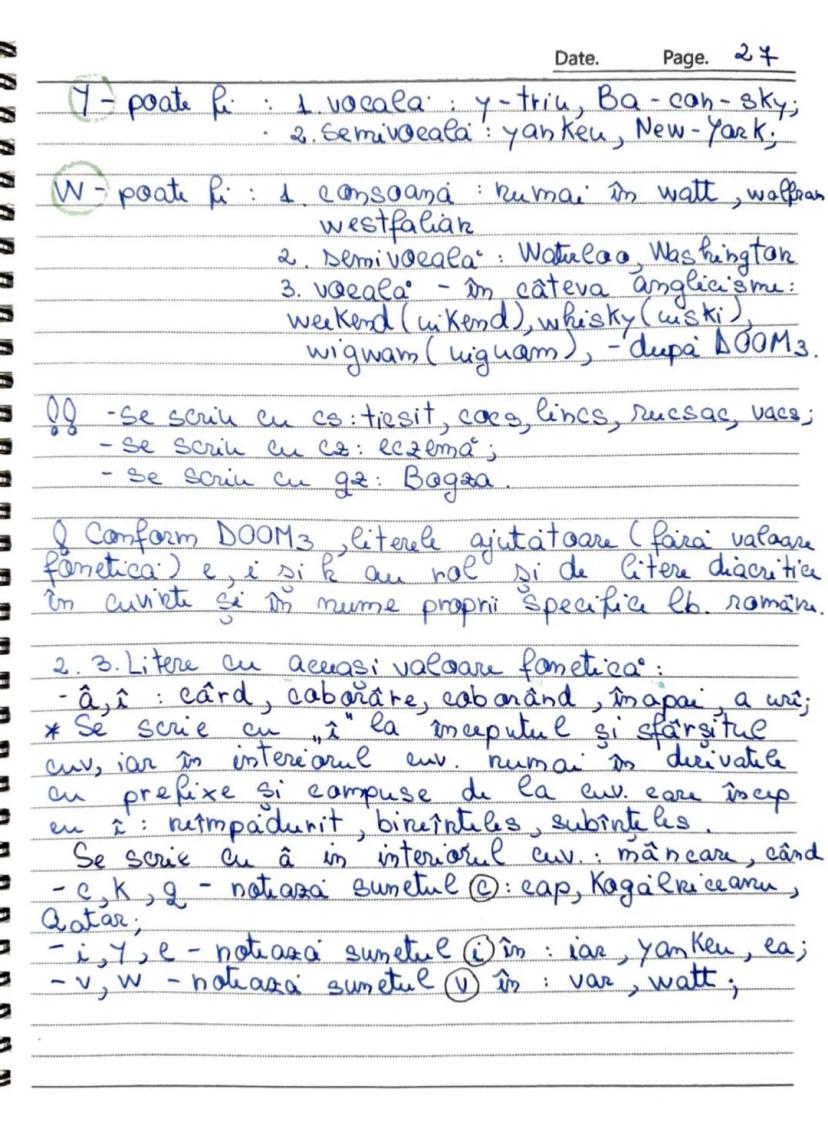 Date. Page. 27
Y - poate fi : 1. vocală : y-triu, Ba-con-sky;
2. Semivocală : yankeu, New-York;
W - poate fi : 1. consoană : numai în watt, wolfram
westfalian
2. semivocală : Waterloo, Washington
3. vocală - în câteva anglicisme:
weekend (uikend), whisky (uiski),
wigwam (uiguam), - după DOOM3.
!! - Se scriu cu cs : ticsit, cocs, lincs, rucsac, vacs;
- Se scriu cu cz : eczemă ;
- Se scriu cu gz : Bogza.
! Conform DOOM3, literele ajutătoare (fără valoare
fonetică) e, i și h au rol și de litere diacritice
în cuvinte și în nume proprii specifice lb. române.
2. 3. Litere cu aceeași valoare fonetică :
- â, î : cârd, coborâre, coborând, înapoi, a urî;
* Se scrie cu „î" la începutul și sfârșitul
cuv, iar în interiorul cuv. numai în derivatele
cu prefixe și compuse de la cuv. care încep
cu î : neîmpădurit, bineînțeles, subînțeles.
Se scrie cu â in interiorul cuv. : mâncare, când
- c, k, q - notează sunetul (c) : cap, Kogălniceanu,
Qatar;
- i, y, e - notează sunetul (i) în : iar, yankeu, ea;
- v, w - notează sunetul (v) în : var, watt ;